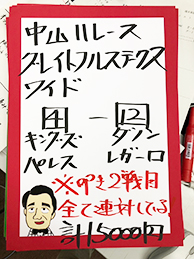 中山11レース
グレイトフルステクス
ワイド
4 - 12
キングズ タソン
パレス レガーロ
※のき2戦目
全て連対してる
計15000円